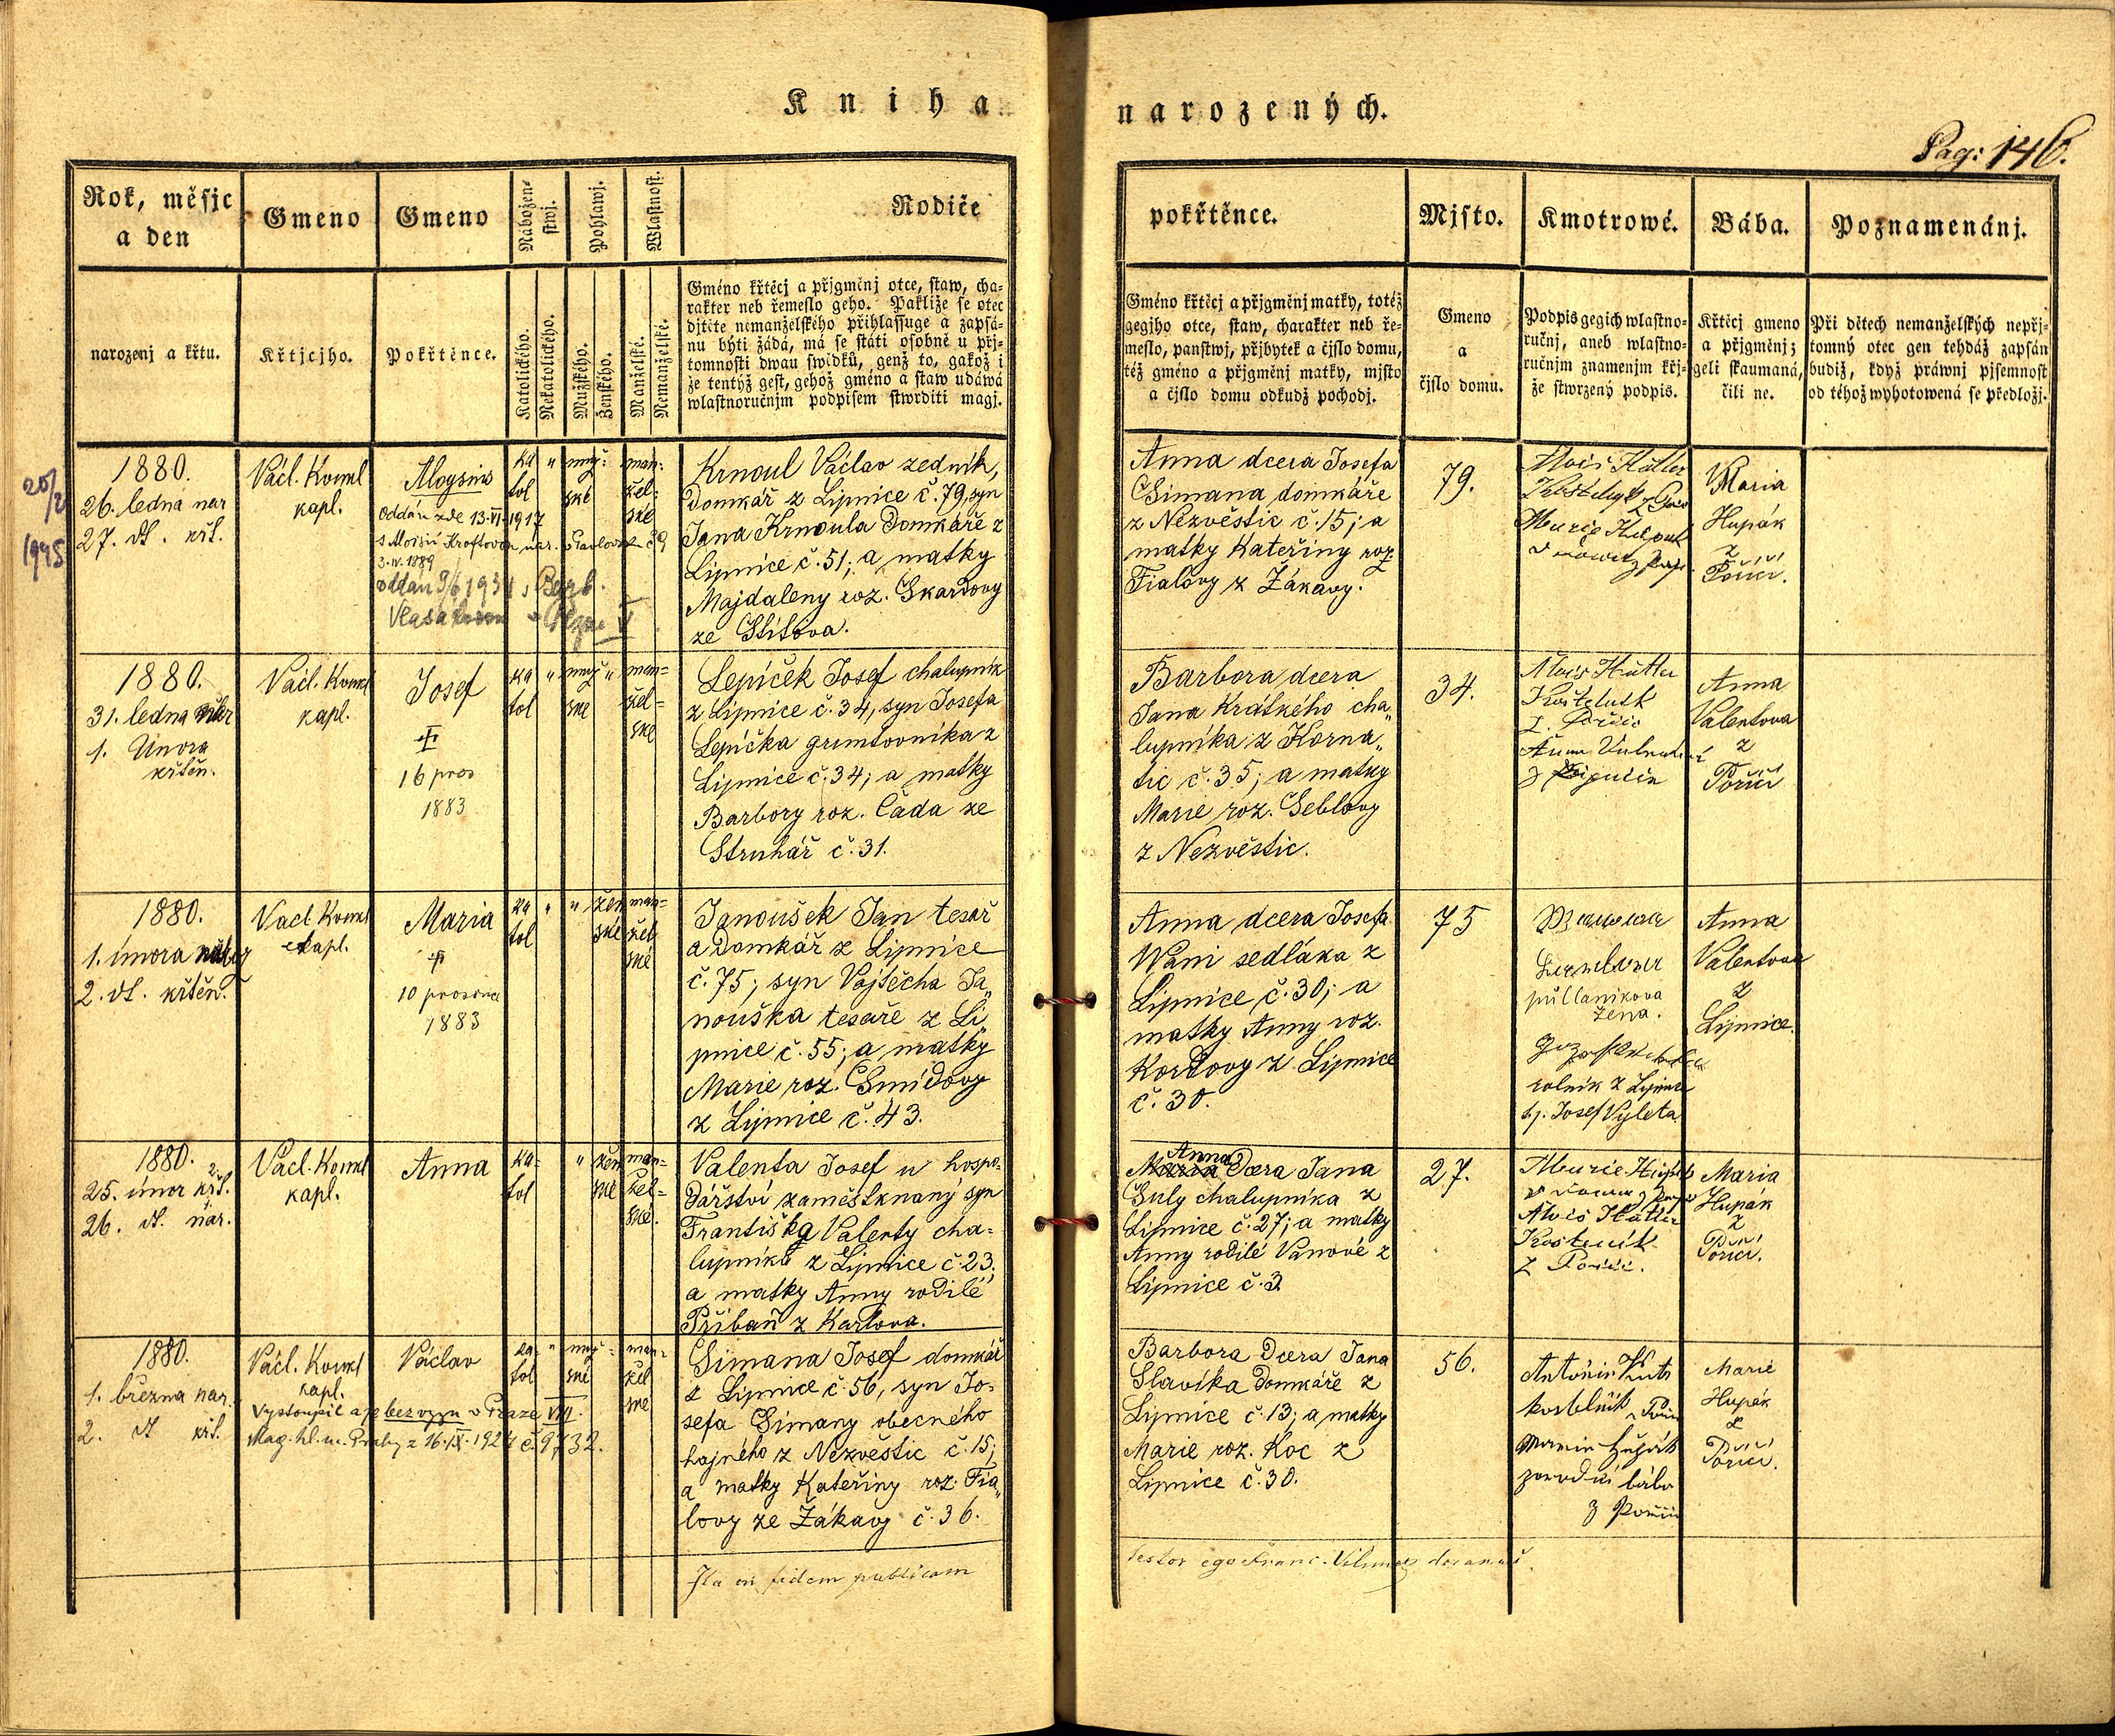 Kniha
narozených.
Pag: 146.
Rok, měsjc
a den
Gmeno
Gmeno
Nábožen-
stwj.
Pohlawj.
Wlastnost.
Rodiče
pokřtěnce.
Mjsto.
Kmotrowé.
Bába.
Poznamenánj.
narozenj a křtu.
Křtjcjho.
Pokřtěnce.
Katolického.
Nekatolického.
Mužského.
Ženského.
Manželské.
Nemanželské.
Gméno křtěcj a přjgměnj otce, staw, cha-
rakter neb řemeslo geho. Pakliže se otec
djtěte nemanželského přihlassuge a zapsá-
nu býti žádá, má se státi osobně u přj-
tomnosti dwau swědků, genž to, gakož i
že tentýž gest, gehož gméno a staw udáwá
wlastnoručnjm podpisem stwrditi magj.
Gméno křtěcj a přjgměnj matky, totéž
gegjho otce, staw, charakter neb ře-
meslo, panstwj, přjbytek a čjslo domu,
též gméno a přjgměnj matky, mjsto
a čjslo domu odkudž pochodj.
Gmeno
a
čjslo domu.
Podpis gegich wlastno-
ručnj, aneb wlastno-
ručnjm znamenjm křj-
že stwrzený podpis.
Křtěcj gmeno
a přjgměnj;
geli skaumaná,
čili ne.
Při dětech nemanželských nepřj-
tomný otec gen tehdáž zapsán
budiž, když práwnj pjsemnost
od téhož wyhotowená se předložj.
1880.
26. ledna nar
27. dt. křt.
Václ. Komel
kapl.
Aloysius
Oddán zde 13.VI.1917
s Aloisií Kroftovou nar.
3.IV.1889
ka
tol
"
muž:
ské
man:
žel:
ské
Krnoul Václav zedník,
domkář z Lipnice č. 79, syn
Jana Krnoula domkáře z
Lipnice č. 51; a matky
Majdaleny roz. Skardovy
ze Stítova.
Anna dcera Josefa
Šimana domkáře
z Nezvěstic č. 15; a
matky Kateřiny roz
Fialovy z Žákavy.
79.
Alois Hütler
Maria
Hupák
z
Poříčí.
1880.
31. ledna nar
1. Února
křtěn.
Václ. Komel
kapl.
Josef
16 pros
1883
ka
tol
"
muž
ské
"
man=
žel=
ské
Lepíček Josef chalupník
z Lipnice č. 34, syn Josefa
Lepíčka gruntovníka z
Lipnice č. 34; a matky
Barbory roz. Čada ze
Struhář č. 31.
Barbora dcera
Jana Krátkého cha„
lupníka z Korna„
tic č. 35; a matky
Marie roz. Seblovy
z Nezvěstic.
34.
Alois Hütler
Anna
Valentova
z
Poříčí
1880.
1. února
2. dt. křtěn.
Vacl. Komel
kapl.
Maria
10 prosince
1883
ka
tol
"
"
žen
ské
man=
žel
ské
Janoušek Jan tesař
a domkář z Lipnice
č. 75; syn Vojtěcha Ja„
nouška tesaře z Li„
pnice č. 55; a matky
Marie roz. Šmídovy
z Lipnice č. 43.
Anna dcera Josefa
Wani sedláka z
Lipnice č. 30; a
matky Anny roz.
Kordovy z Lipnice
č. 30.
75
půllaníkova
žena.
rolník z Lipnice
Josef Vyleta
Anna
Valentova
z
Lipnice.
1880.
25. únor křt.
26. dt. nar.
Václ. Komel
kapl.
Anna
ka=
tol
"
žen
ské
man=
žel=
ské.
Valenta Josef u hospo=
dářství zaměstknaný syn
Františka Valenty cha=
lupníka z Lipnice č. 23,
a matky Anny rodilé
Přibáň z Karlova.
Anna
Maria Dcera Jana
Šuly chalupníka z
Lipnice č. 27; a matky
Anny rodilé Vanové z
Lipnice č. 3.
27.
Alois Hütler
Kostelník
z Poříčí.
Maria
Hupák
z
Poříčí.
1880.
1. března nar.
2. dt křt.
Václ. Komel
kapl.
Václav
Vystoupil a je bez vyzn v Praze VIII.
Mag. hl. m. Prahy z 16.IX.1924 č. 9732.
ka=
tol
"
muž=
ské
man=
žel
ské
Šimana Josef domkář
z Lipnice č. 56, syn Jo=
sefa Šimany obecného
hajného z Nezvěstic č. 15;
a matky Kateřiny roz. Fia„
lovy ze Žákavy č. 36.
Barbora Dcera Jana
Slavíka domkáře z
Lipnice č. 13; a matky
Marie roz. Koc z
Lipnice č. 30.
56.
Antonín
kostelník z Poříčí
Marie Hupák
porodní bába
z Poříčí
Marie
Hupák
z
Poříčí.
Ita in fidem publicam
testor ego Franc.